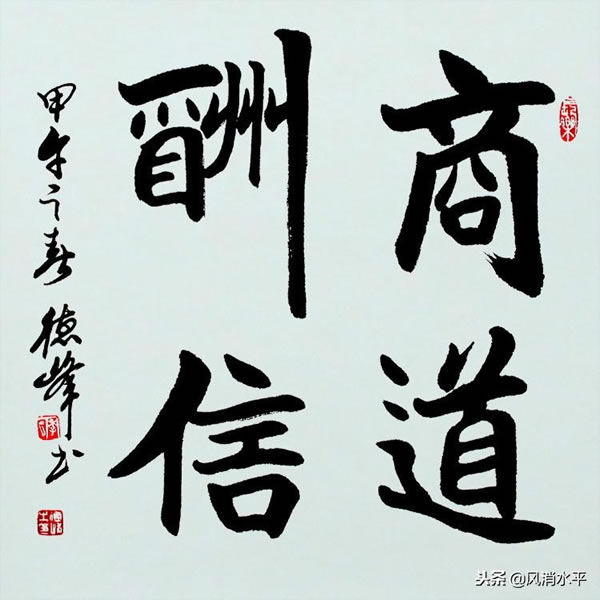 商道
酬信
甲午之春 德峰书
头条 @风消水平